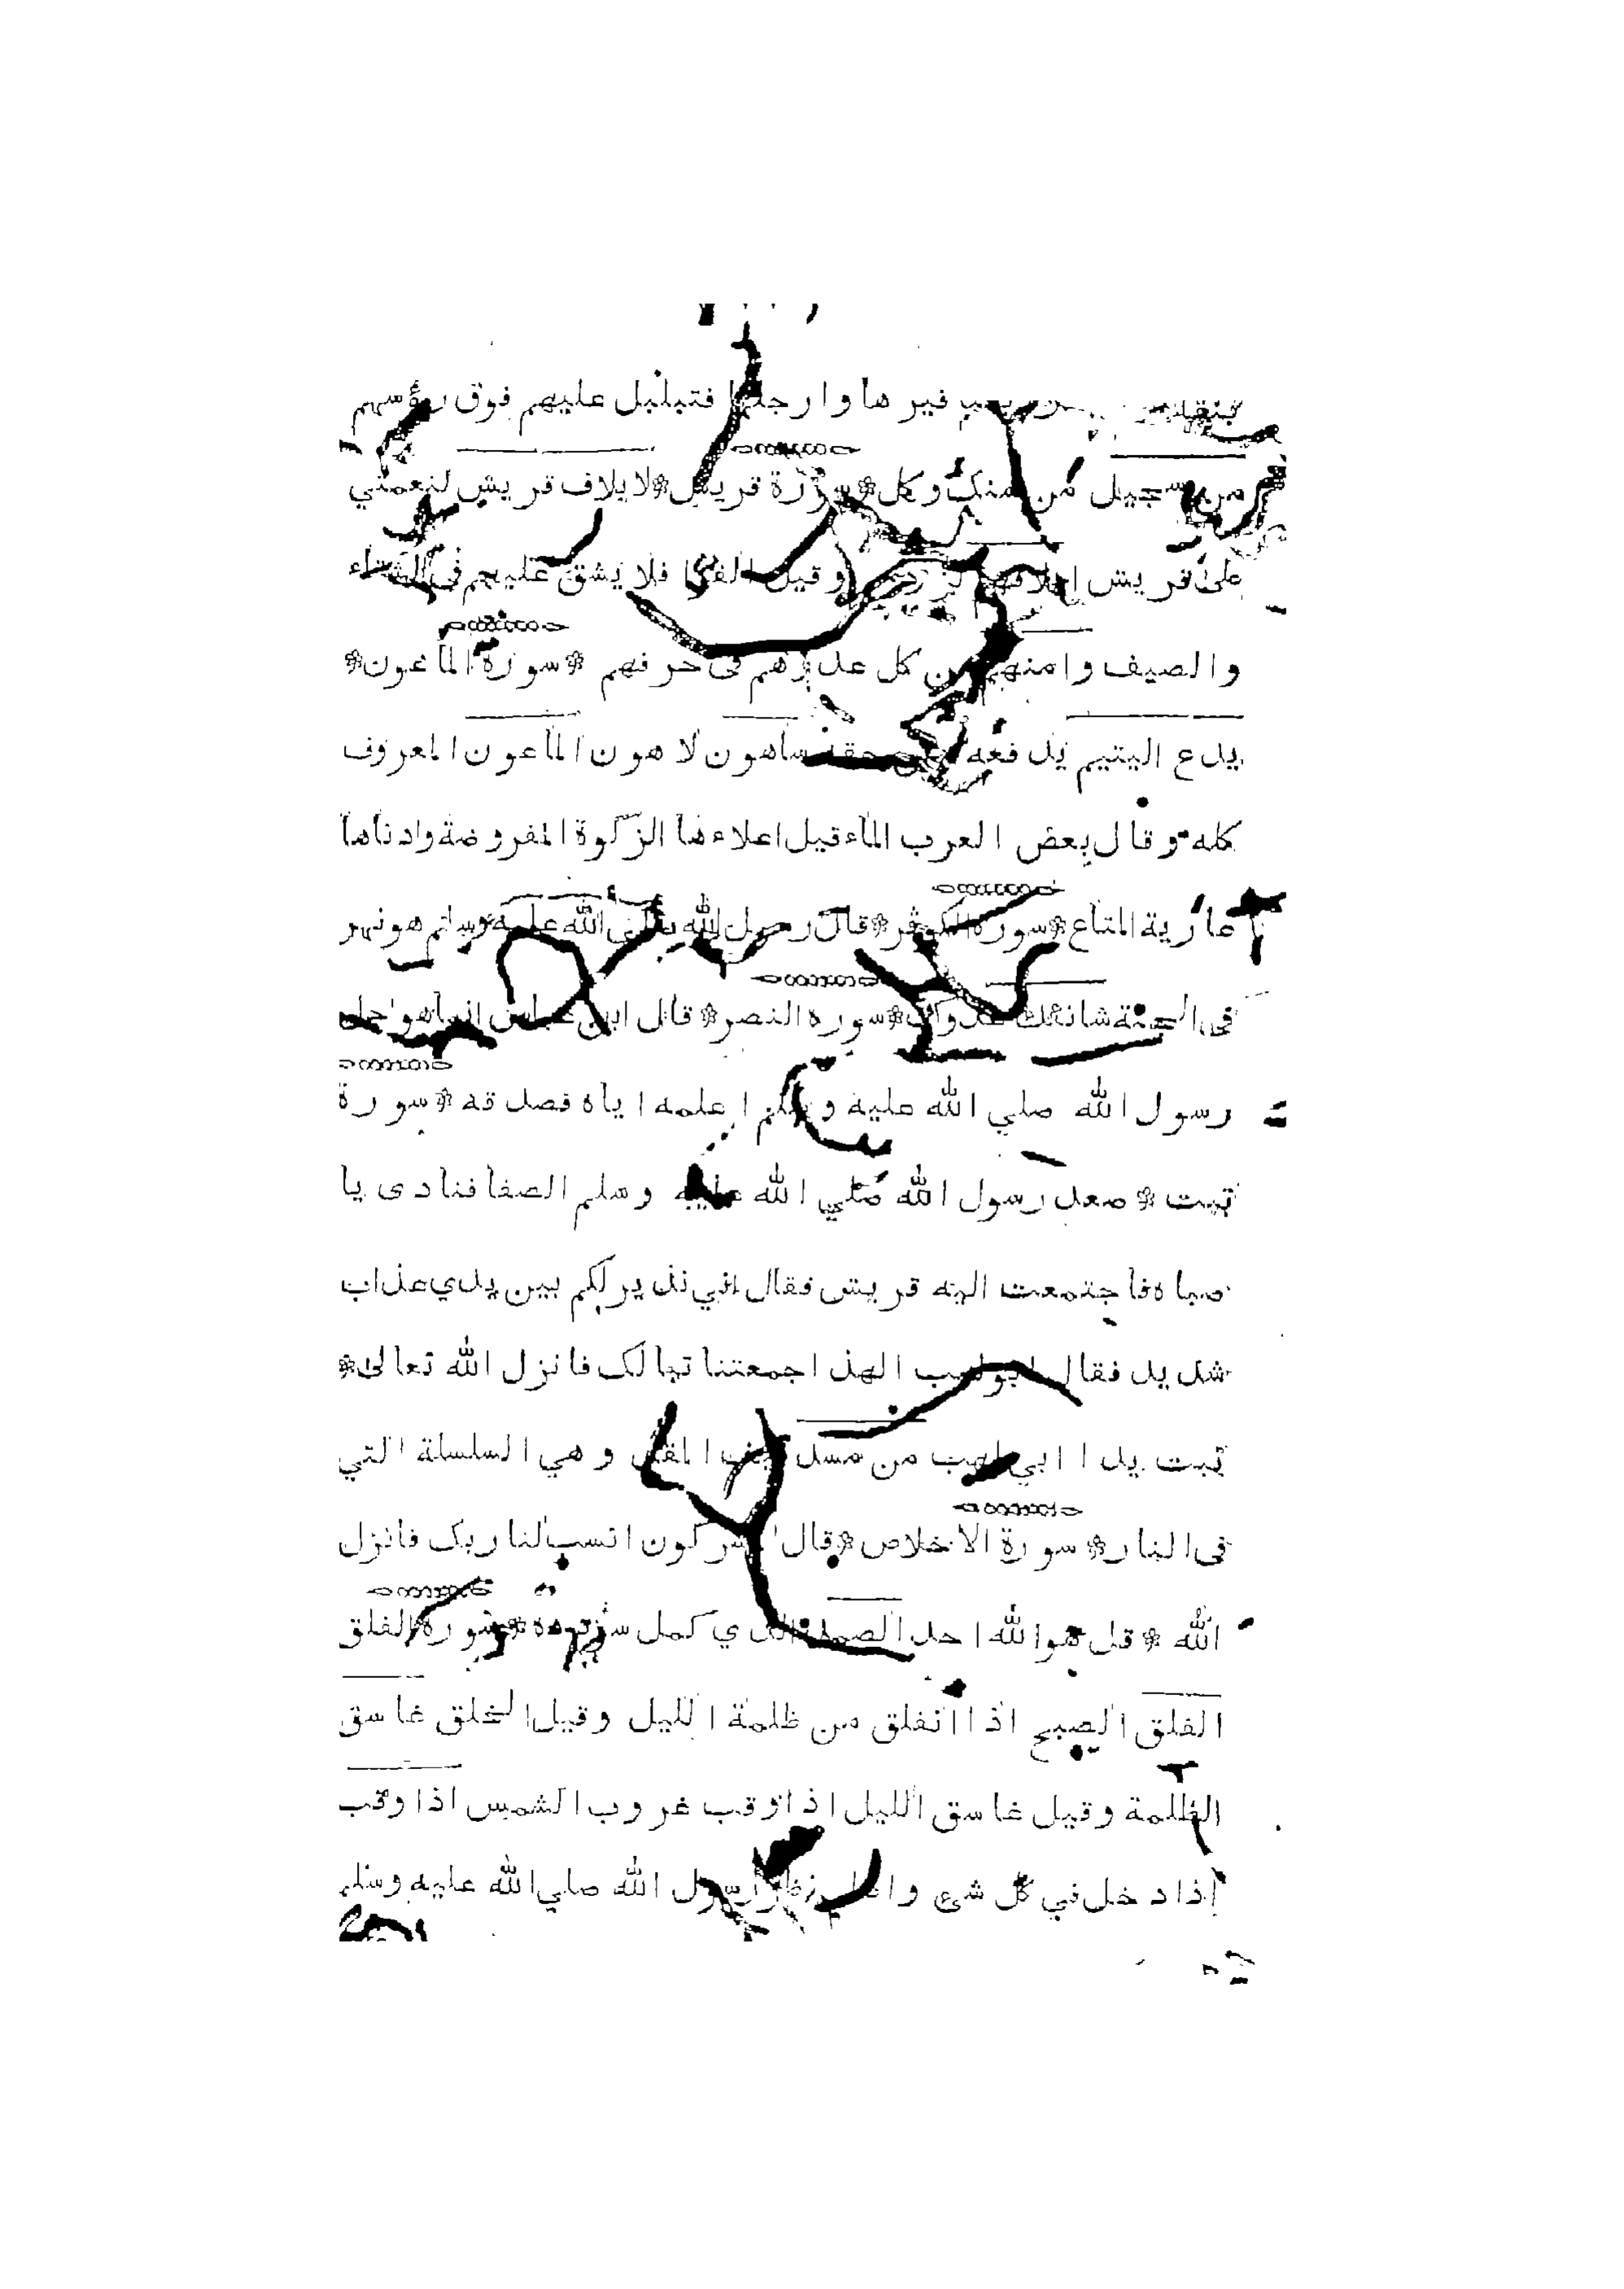 فير ها وا رجلها فتبلبل عليهم فوق رؤسهم
من سجيل من سنك وكل * سورة قريش * لايلاف قريش لنعمتي
على قريش ايلافهم وقيل الفوا فلا يشق عليهم فى الشتاء
والصيف وامنهم من كل عدوهم فى حرفهم * سورة الماعون *
يدع اليتيم يدفعه عن حقه ساهون لاهون الماعون المعروف
كله وقال بعض العرب الماء قيل اعلاءها الزكوة المفروضة وادناها
عارية المتاع * سورة الكوثر * قال رسول الله صلى الله عليه وسلم هو نهر
فى الجنة شانئك عدوك * سورة النصر * قال ابن عباس انما هو اجل
رسول الله صلي الله عليه وسلم اعلمه اياه فصدقه * سورة
تبت * صعد رسول الله صلي الله عليه وسلم الصفا فنادى يا
صباه فاجتمعت اليه قريش فقال اني نذير لكم بين يدي عذاب
شديد فقال ابو لهب الهذا جمعتنا تبالك فانزل الله تعالى *
تبت يدا ابي لهب من مسد ليف المقل وهي السلسلة التي
فى النار * سورة الاخلاص * قال المشركون انسب لنا ربك فانزل
الله * قل هو الله احد الصمد الذي كمل سؤدده * سورة الفلق
الفلق الصبح اذا انفلق من ظلمة الليل وقيل الخلق غاسق
الظلمة وقيل غاسق الليل اذا وقب غروب الشمس اذا وقب
اذا دخل في كل شئ رسول الله صلي الله عليه وسلم